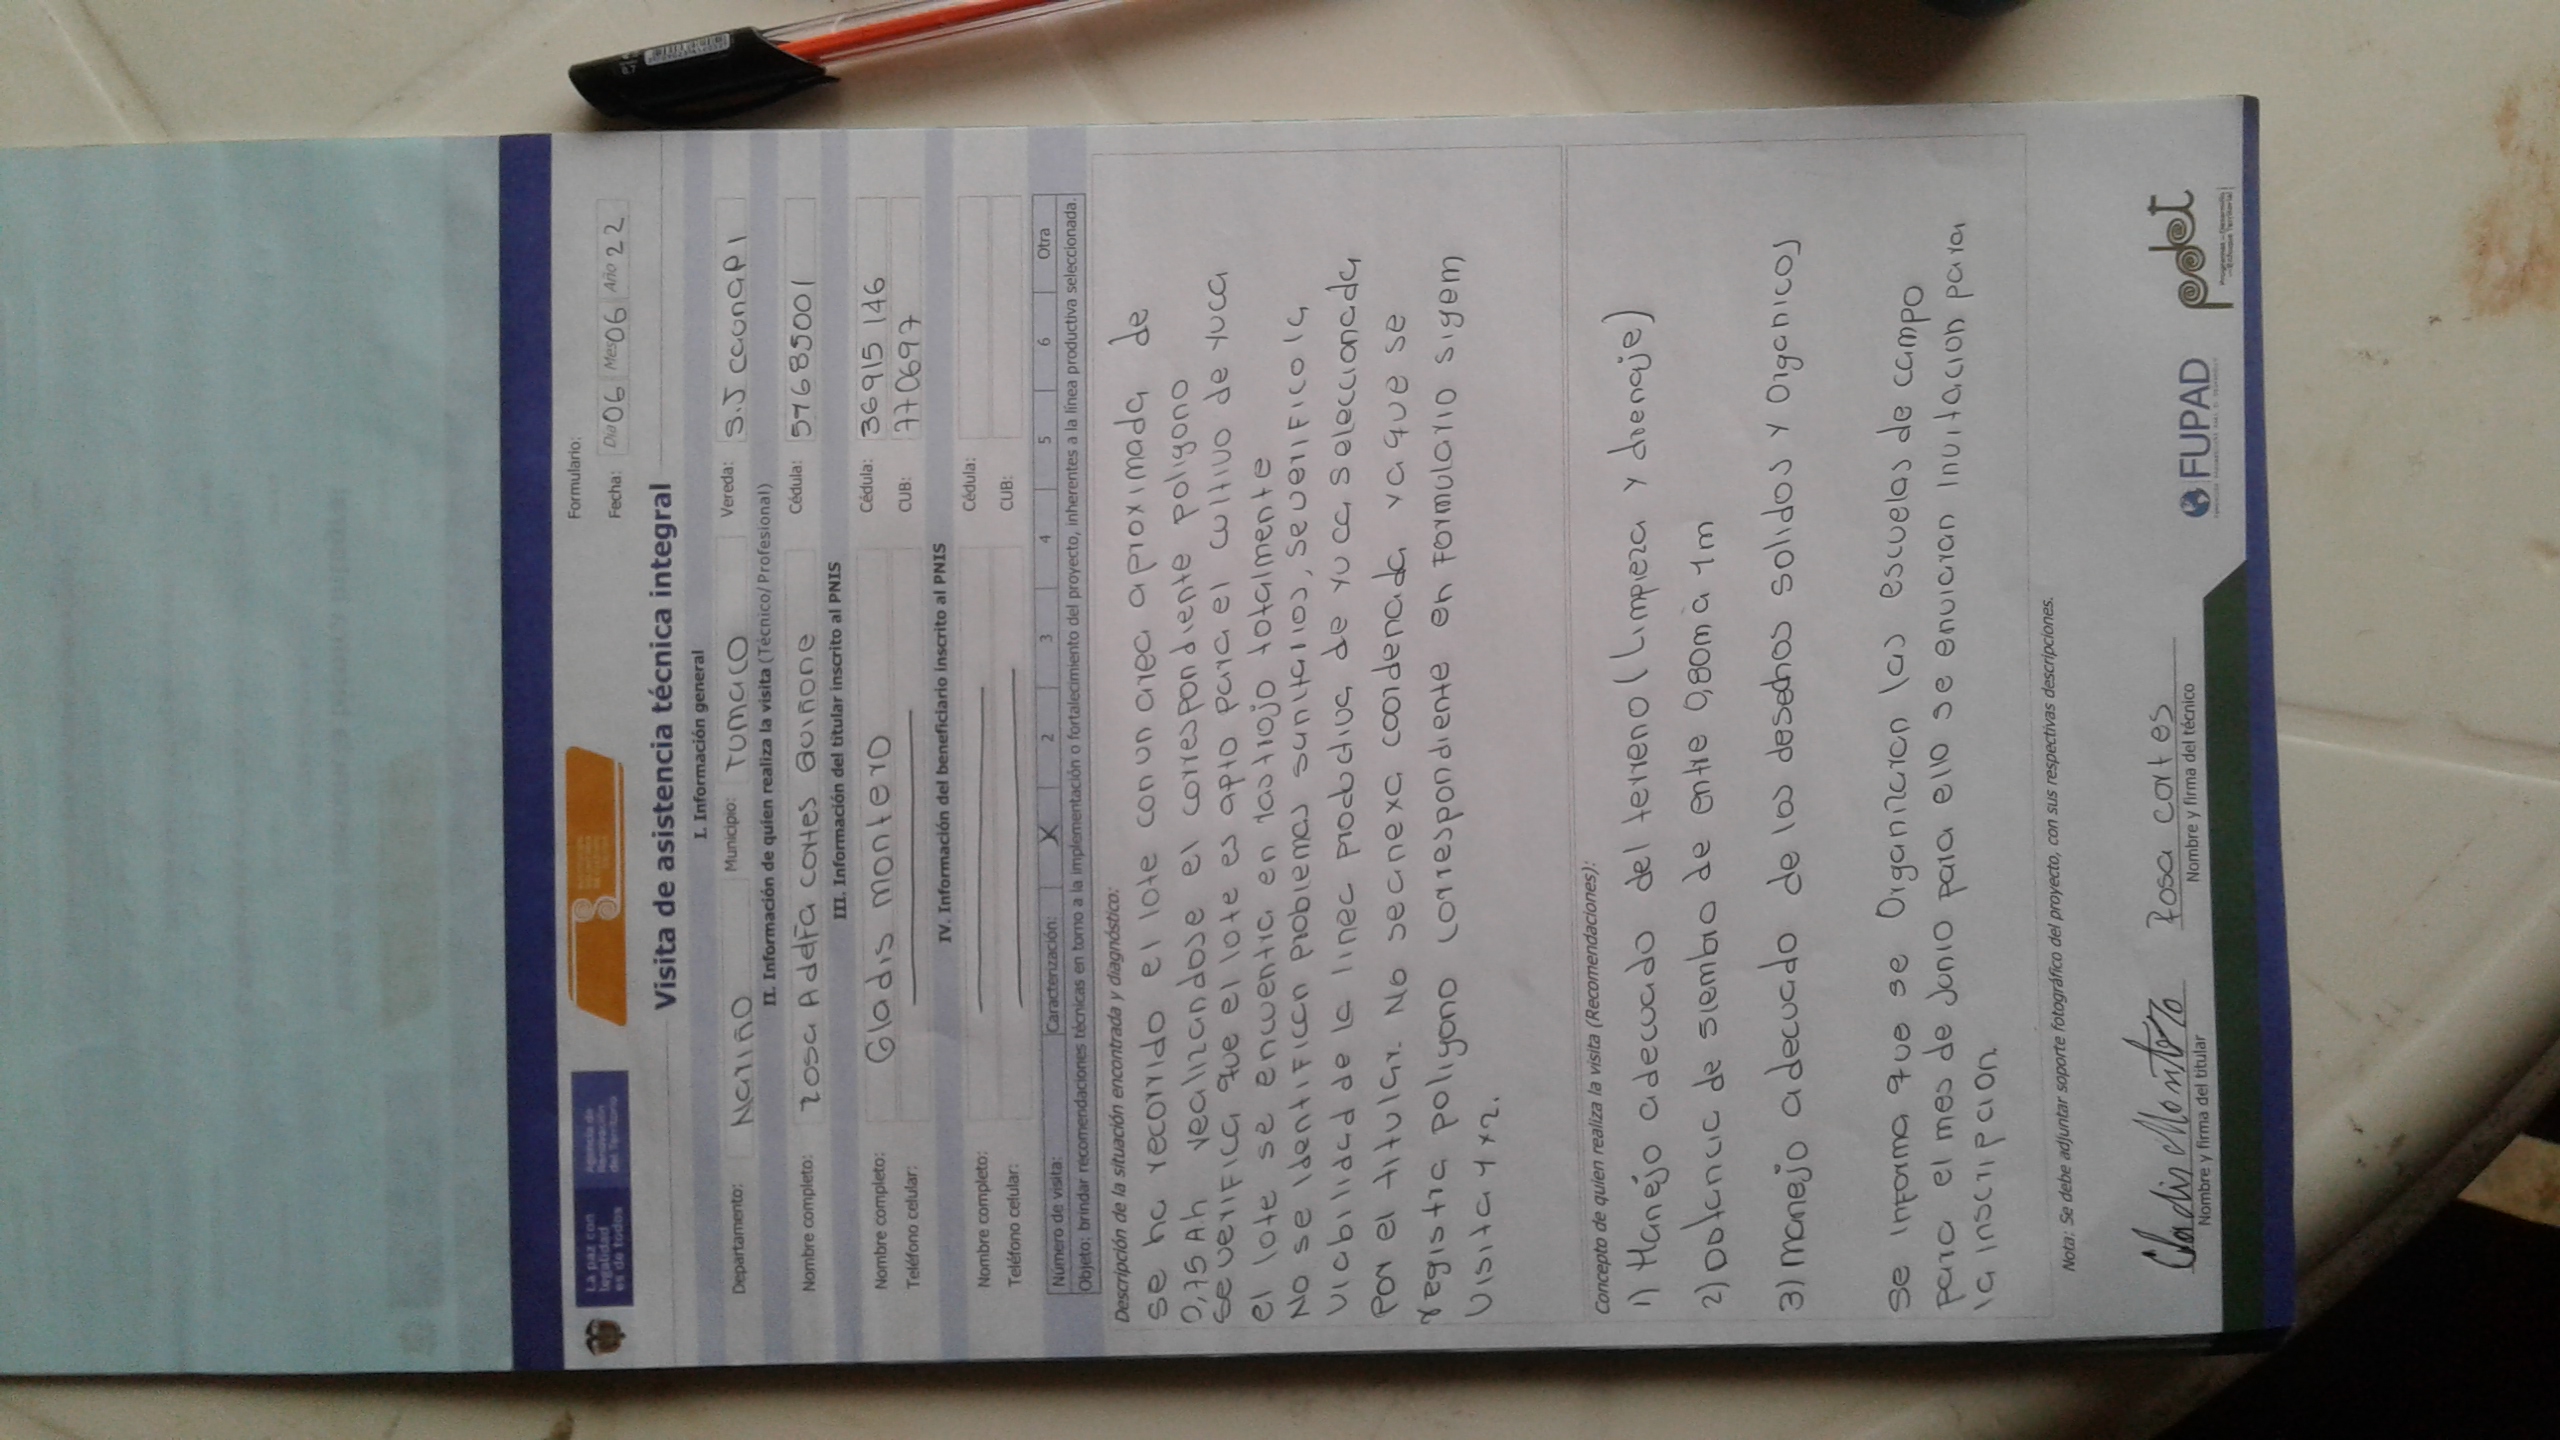 La paz con
legalidad
es de todos
Agencia de
Renovación
del Territorio
Formulario:
Fecha: Día 06 Mes 06 Año 22
Visita de asistencia técnica integral
I. Información general
Departamento: Nariño Municipio: Tumaco Vereda: S.J caunapi
II. Información de quien realiza la visita (Técnico/ Profesional)
Nombre completo: rosa Adelfa cortes quiñone Cédula: 59685001
III. Información del titular inscrito al PNIS
Nombre completo: Gladis montero Cédula: 36915146
Teléfono celular: CUB: 770697
IV. Información del beneficiario inscrito al PNIS
Nombre completo: Cédula:
Teléfono celular: CUB:
Número de visita: Caracterización: X 2 3 4 5 6 Otra
Objeto: brindar recomendaciones técnicas en torno a la implementación o fortalecimiento del proyecto, inherentes a la línea productiva seleccionada.
Descripción de la situación encontrada y diagnóstico:
se ha recorrido el lote con un area aproximada de
0,75 Ah realizandose el correspondiente poligono
se verifica que el lote es apto para el cultivo de yuca
el lote se encuentra en rastrojo totalmente
No se identifican problemas sanitarios, se verifico la
viabilidad de la linea productiva de yuca seleccionada
por el titular. No se anexa coordenada ya que se
registra poligono correspondiente en formulario sigem
visita 1 x 2.
Concepto de quien realiza la visita (Recomendaciones):
1) Manejo adecuado del terreno (Limpieza y drenaje)
2) Distancia de siembra de entre 0,80m a 1m
3) manejo adecuado de los desechos solidos y organicos
se informa que se organizaran las escuelas de campo
para el mes de Junio para ello se enviaran invitacion para
la inscripcion.
Nota: Se debe adjuntar soporte fotográfico del proyecto, con sus respectivas descripciones.
Gladis Montero
Nombre y firma del titular
Rosa cortes
Nombre y firma del técnico
FUPAD
pdet